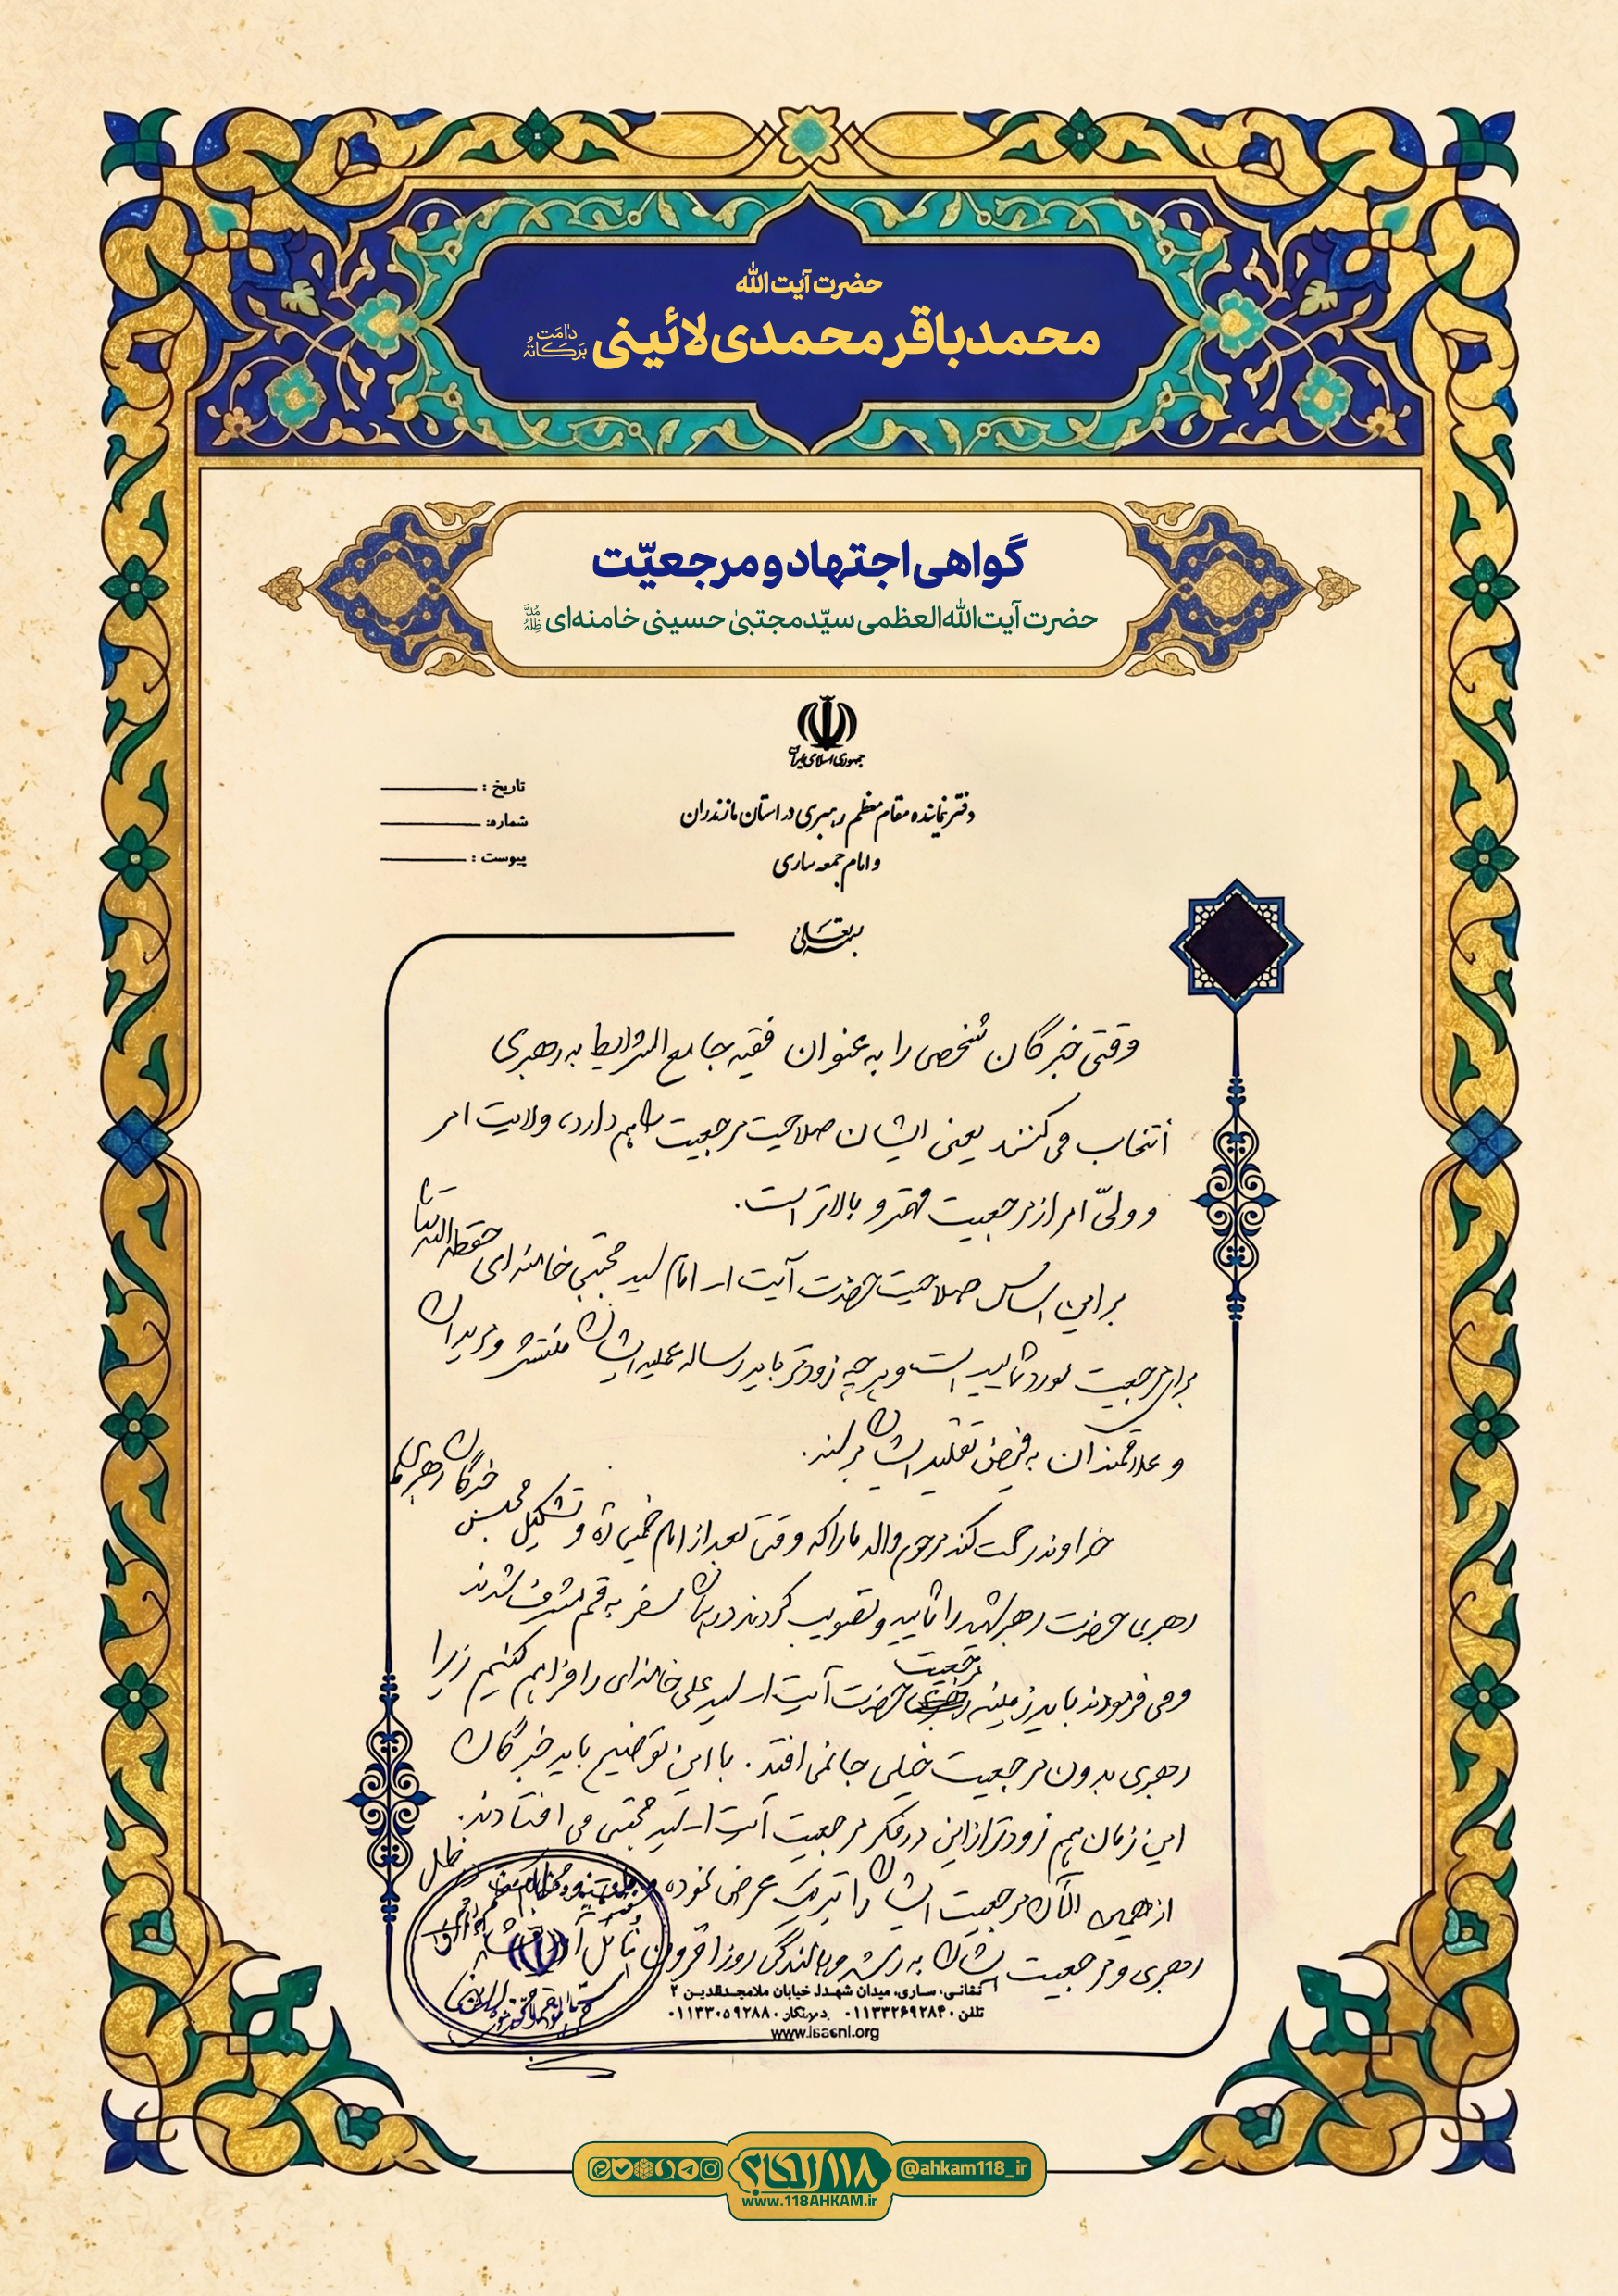 حضرت آیت‌الله
محمدباقر محمدی لائینی دامَت بَرَکاتُهُ
گواهی اجتهاد و مرجعیّت
حضرت آیت‌الله‌العظمی سیّد مجتبیٰ حسینی خامنه‌ای مُدَّ ظِلُّهُ
جمهوری اسلامی ایران
دفتر نماینده مقام معظم رهبری در استان مازندران
و امام جمعه ساری
تاریخ :
شماره:
پیوست :
بسمه تعالی
وقتی خبرگان شخصی را به عنوان فقیه جامع الشرایط به رهبری
انتخاب می کنند یعنی ایشان صلاحیت مرجعیت را هم دارد، ولایت امر
و ولیّ امر از مرجعیت مهمتر و بالاتر است.
بر این اساس صلاحیت حضرت آیت ا... امام سید مجتبی خامنه ای حفظه الله
برای مرجعیت مورد تأیید است و هر چه زودتر باید رساله عملیه ایشان منتشر و مریدان
و علاقمندان به فیض تقلید ایشان برسند.
خداوند رحمت کند مرحوم والد ما را که وقتی بعد از امام خمینی ره و تشکیل مجلس خبرگان رهبری
رهبری حضرت رهبر شهید را تأیید و تصویب کردند در همان سفر به قم مشرف شدند
و می فرمودند باید زمینه مرجعیت حضرت آیت ا... سید علی خامنه ای را فراهم کنیم زیرا
رهبری بدون مرجعیت خیلی جا نمی افتد. با این توضیح باید خبرگان
این زمان هم زودتر از این در فکر مرجعیت آیت ا... سید مجتبی می افتادند.
از همین الآن مرجعیت ایشان را تبریک عرض نموده و
رهبری و مرجعیت ایشان به رشد و بالندگی روز افزون
نشانی، ساری، میدان شهدا، خیابان ملامجدالدین ۲
تلفن ۰۱۱۳۳۲۶۹۲۸۴۰ دورنگار ۰۱۱۳۳۰۵۹۲۸۸۰
@ahkam118_ir
۱۱۸ احکام
www.118AHKAM.ir